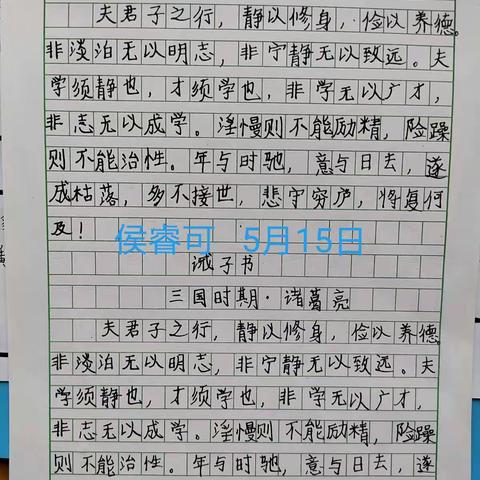 夫君子之行，静以修身，俭以养德。
非淡泊无以明志，非宁静无以致远。夫
学须静也，才须学也，非学无以广才，
非志无以成学。淫慢则不能励精，险躁
则不能治性。年与时驰，意与日去，遂
成枯落，多不接世，悲守穷庐，将复何
及！
侯睿可 5月15日
诫子书
三国时期·诸葛亮
夫君子之行，静以修身，俭以养德
非淡泊无以明志，非宁静无以致远。夫
学须静也，才须学也，非学无以广才，
非志无以成学。淫慢则不能励精，险躁
则不能治性。年与时驰，意与日去，遂